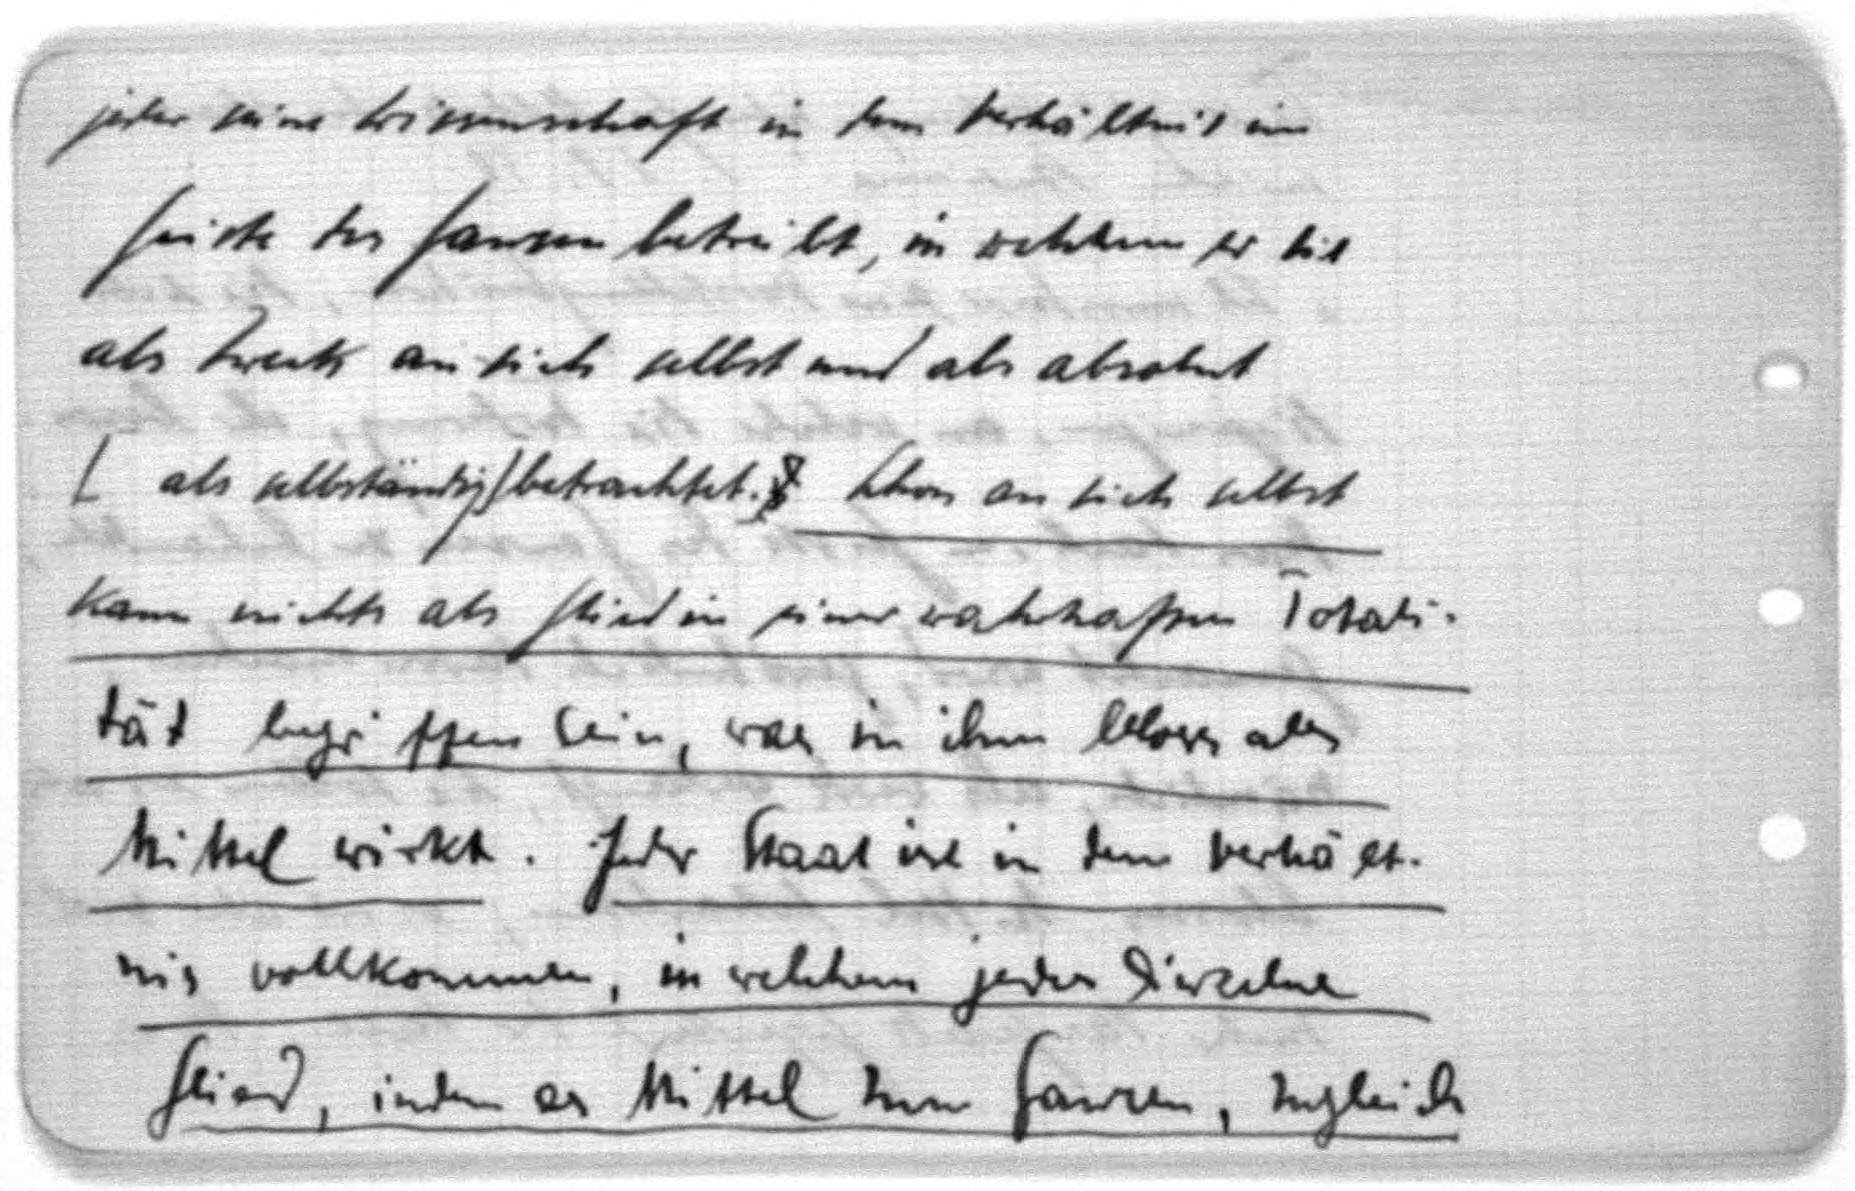 jeder seine Wissenschaft in dem Verhältnis im
Geiste des Ganzen betreibt, in welchem er sie
als Zweck an sich selbst und als absolut
[ als selbständig] betrachtet. Schon an sich selbst
kann nichts als Glied in einer wahrhaften Totali-
tät begriffen sein, was in ihm bloss als
Mittel wirkt. Jeder Staat ist in dem Verhält-
nis vollkommen, in welchem jedes Einzelne
Glied, indem es Mittel zum Ganzen, zugleich